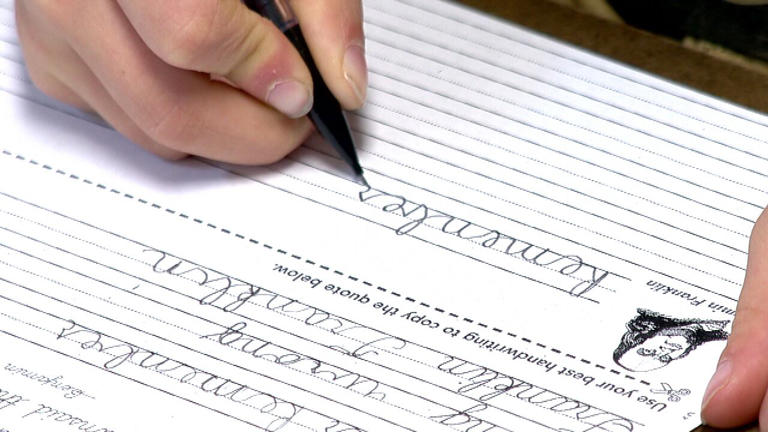 unsaid the
Benjamin
Remember
wrong
Franklin Franklin
Use your best handwriting to copy the quote below.
Franklin
Remember